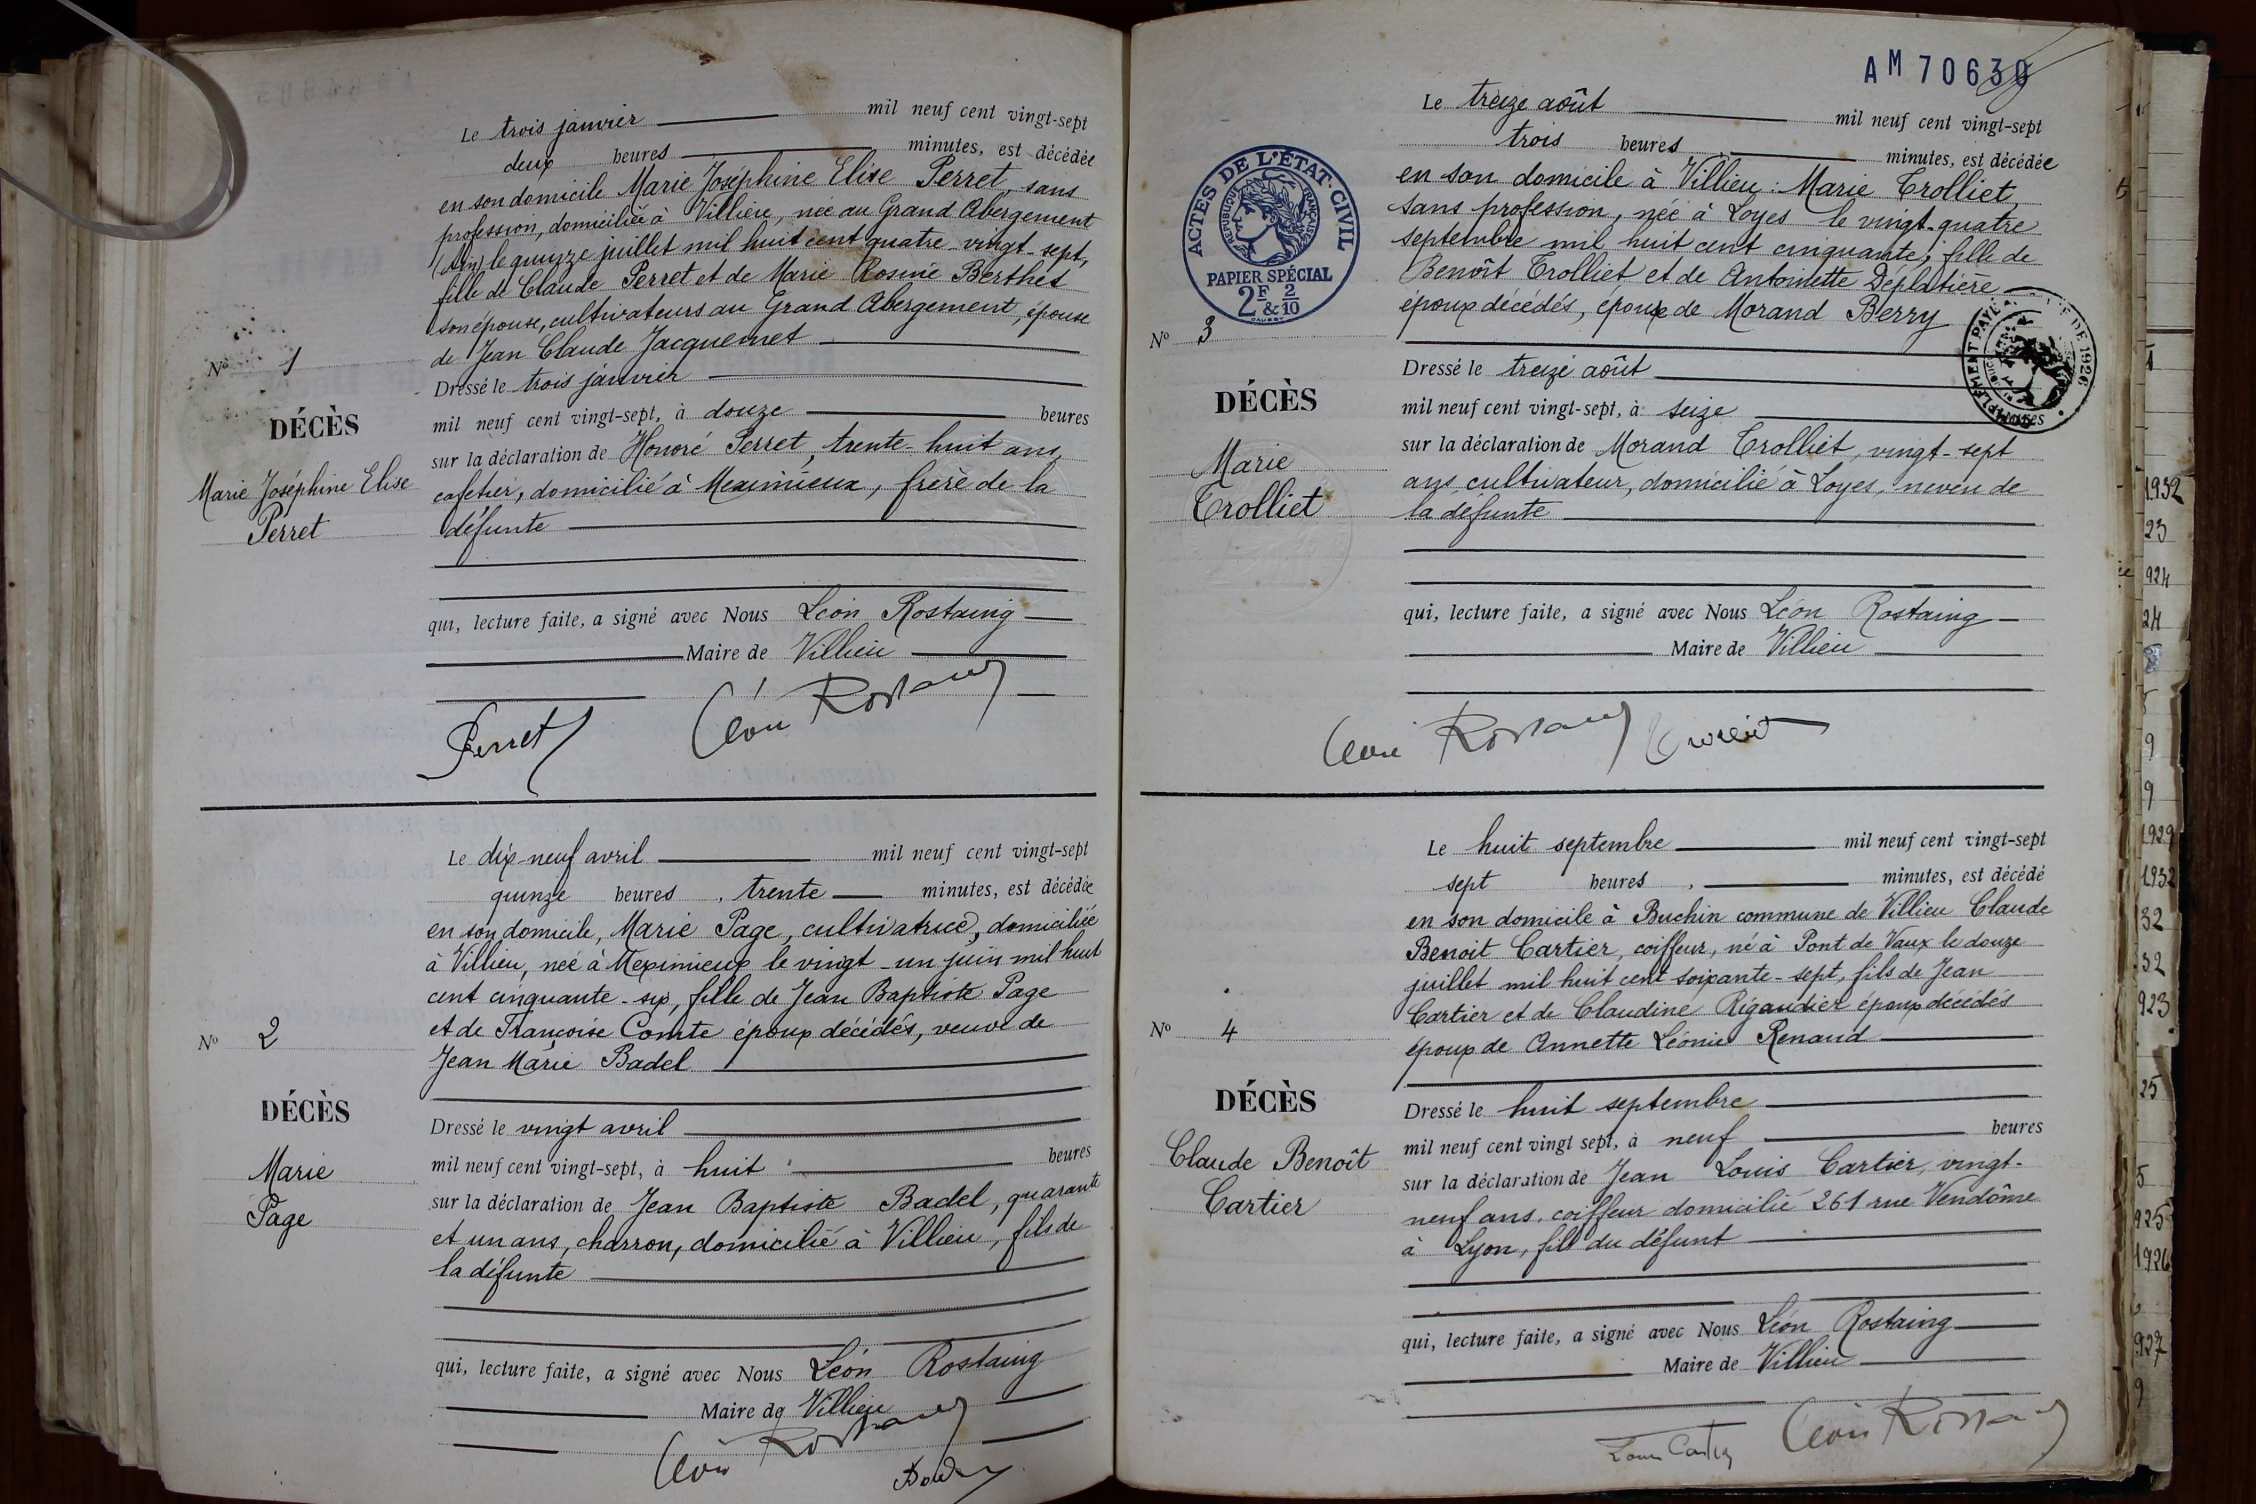 Le trois janvier mil neuf cent vingt-sept
deux heures minutes, est décédée
en son domicile Marie Joséphine Elise Perret, sans
profession, domiciliée à Villieu, née au Grand Abergement
(Ain) le quinze juillet mil huit cent quatre-vingt-sept,
fille de Claude Perret et de Marie Rosine Berthet
son épouse, cultivateurs au Grand Abergement, épouse
de Jean Claude Jacquemet
Nº 1
DÉCÈS
Marie Joséphine Elise
Perret
Dressé le trois janvier
mil neuf cent vingt-sept, à douze heures
sur la déclaration de Honoré Perret, trente-huit ans,
cafetier, domicilié à Meximieux, frère de la
défunte
qui, lecture faite, a signé avec Nous Léon Rostaing
Maire de Villieu
Perret Léon Rostaing
Le dix-neuf avril mil neuf cent vingt-sept
quinze heures, trente minutes, est décédée
en son domicile, Marie Page, cultivatrice, domiciliée
à Villieu, née à Meximieux le vingt-un juin mil huit
cent cinquante-six, fille de Jean Baptiste Page
et de Françoise Comte époux décédés, veuve de
Jean Marie Badel
Nº 2
DÉCÈS
Marie
Page
Dressé le vingt avril
mil neuf cent vingt-sept, à huit heures
sur la déclaration de Jean Baptiste Badel, quarante
et un ans, charron, domicilié à Villieu, fils de
la défunte
qui, lecture faite, a signé avec Nous Léon Rostaing
Maire de Villieu
Léon Rostaing
Badel
AM 70630
Le treize août mil neuf cent vingt-sept
trois heures, minutes, est décédée
en son domicile à Villieu : Marie Trolliet,
sans profession, née à Loyes le vingt-quatre
septembre mil huit cent cinquante, fille de
Benoît Trolliet et de Antoinette Déplatière
époux décédés, épouse de Morand Berry
ACTES DE L'ÉTAT-CIVIL
RÉPUBLIQUE FRANÇAISE
PAPIER SPÉCIAL
2F & 2/10
Nº 3
DÉCÈS
Marie
Trolliet
Dressé le treize août
mil neuf cent vingt-sept, à seize heures
sur la déclaration de Morand Trolliet, vingt-sept
ans, cultivateur, domicilié à Loyes, neveu de
la défunte
qui, lecture faite, a signé avec Nous Léon Rostaing
Maire de Villieu
Léon Rostaing Trolliet
Le huit septembre mil neuf cent vingt-sept
sept heures, minutes, est décédé
en son domicile à Buchin commune de Villieu Claude
Benoit Cartier, coiffeur, né à Pont de Vaux le douze
juillet mil huit cent soixante-sept, fils de Jean
Cartier et de Claudine Rigaudier époux décédés
époux de Annette Léonie Renaud
Nº 4
DÉCÈS
Claude Benoît
Cartier
Dressé le huit septembre
mil neuf cent vingt sept, à neuf heures
sur la déclaration de Jean Louis Cartier, vingt-
neuf ans, coiffeur domicilié 261 rue Vendôme
à Lyon, fils du défunt
qui, lecture faite, a signé avec Nous Léon Rostaing
Maire de Villieu
Louis Cartier Léon Rostaing
1932
23
924
24
9
9
1929
1932
32
32
923
25
5
925
1926
927
9